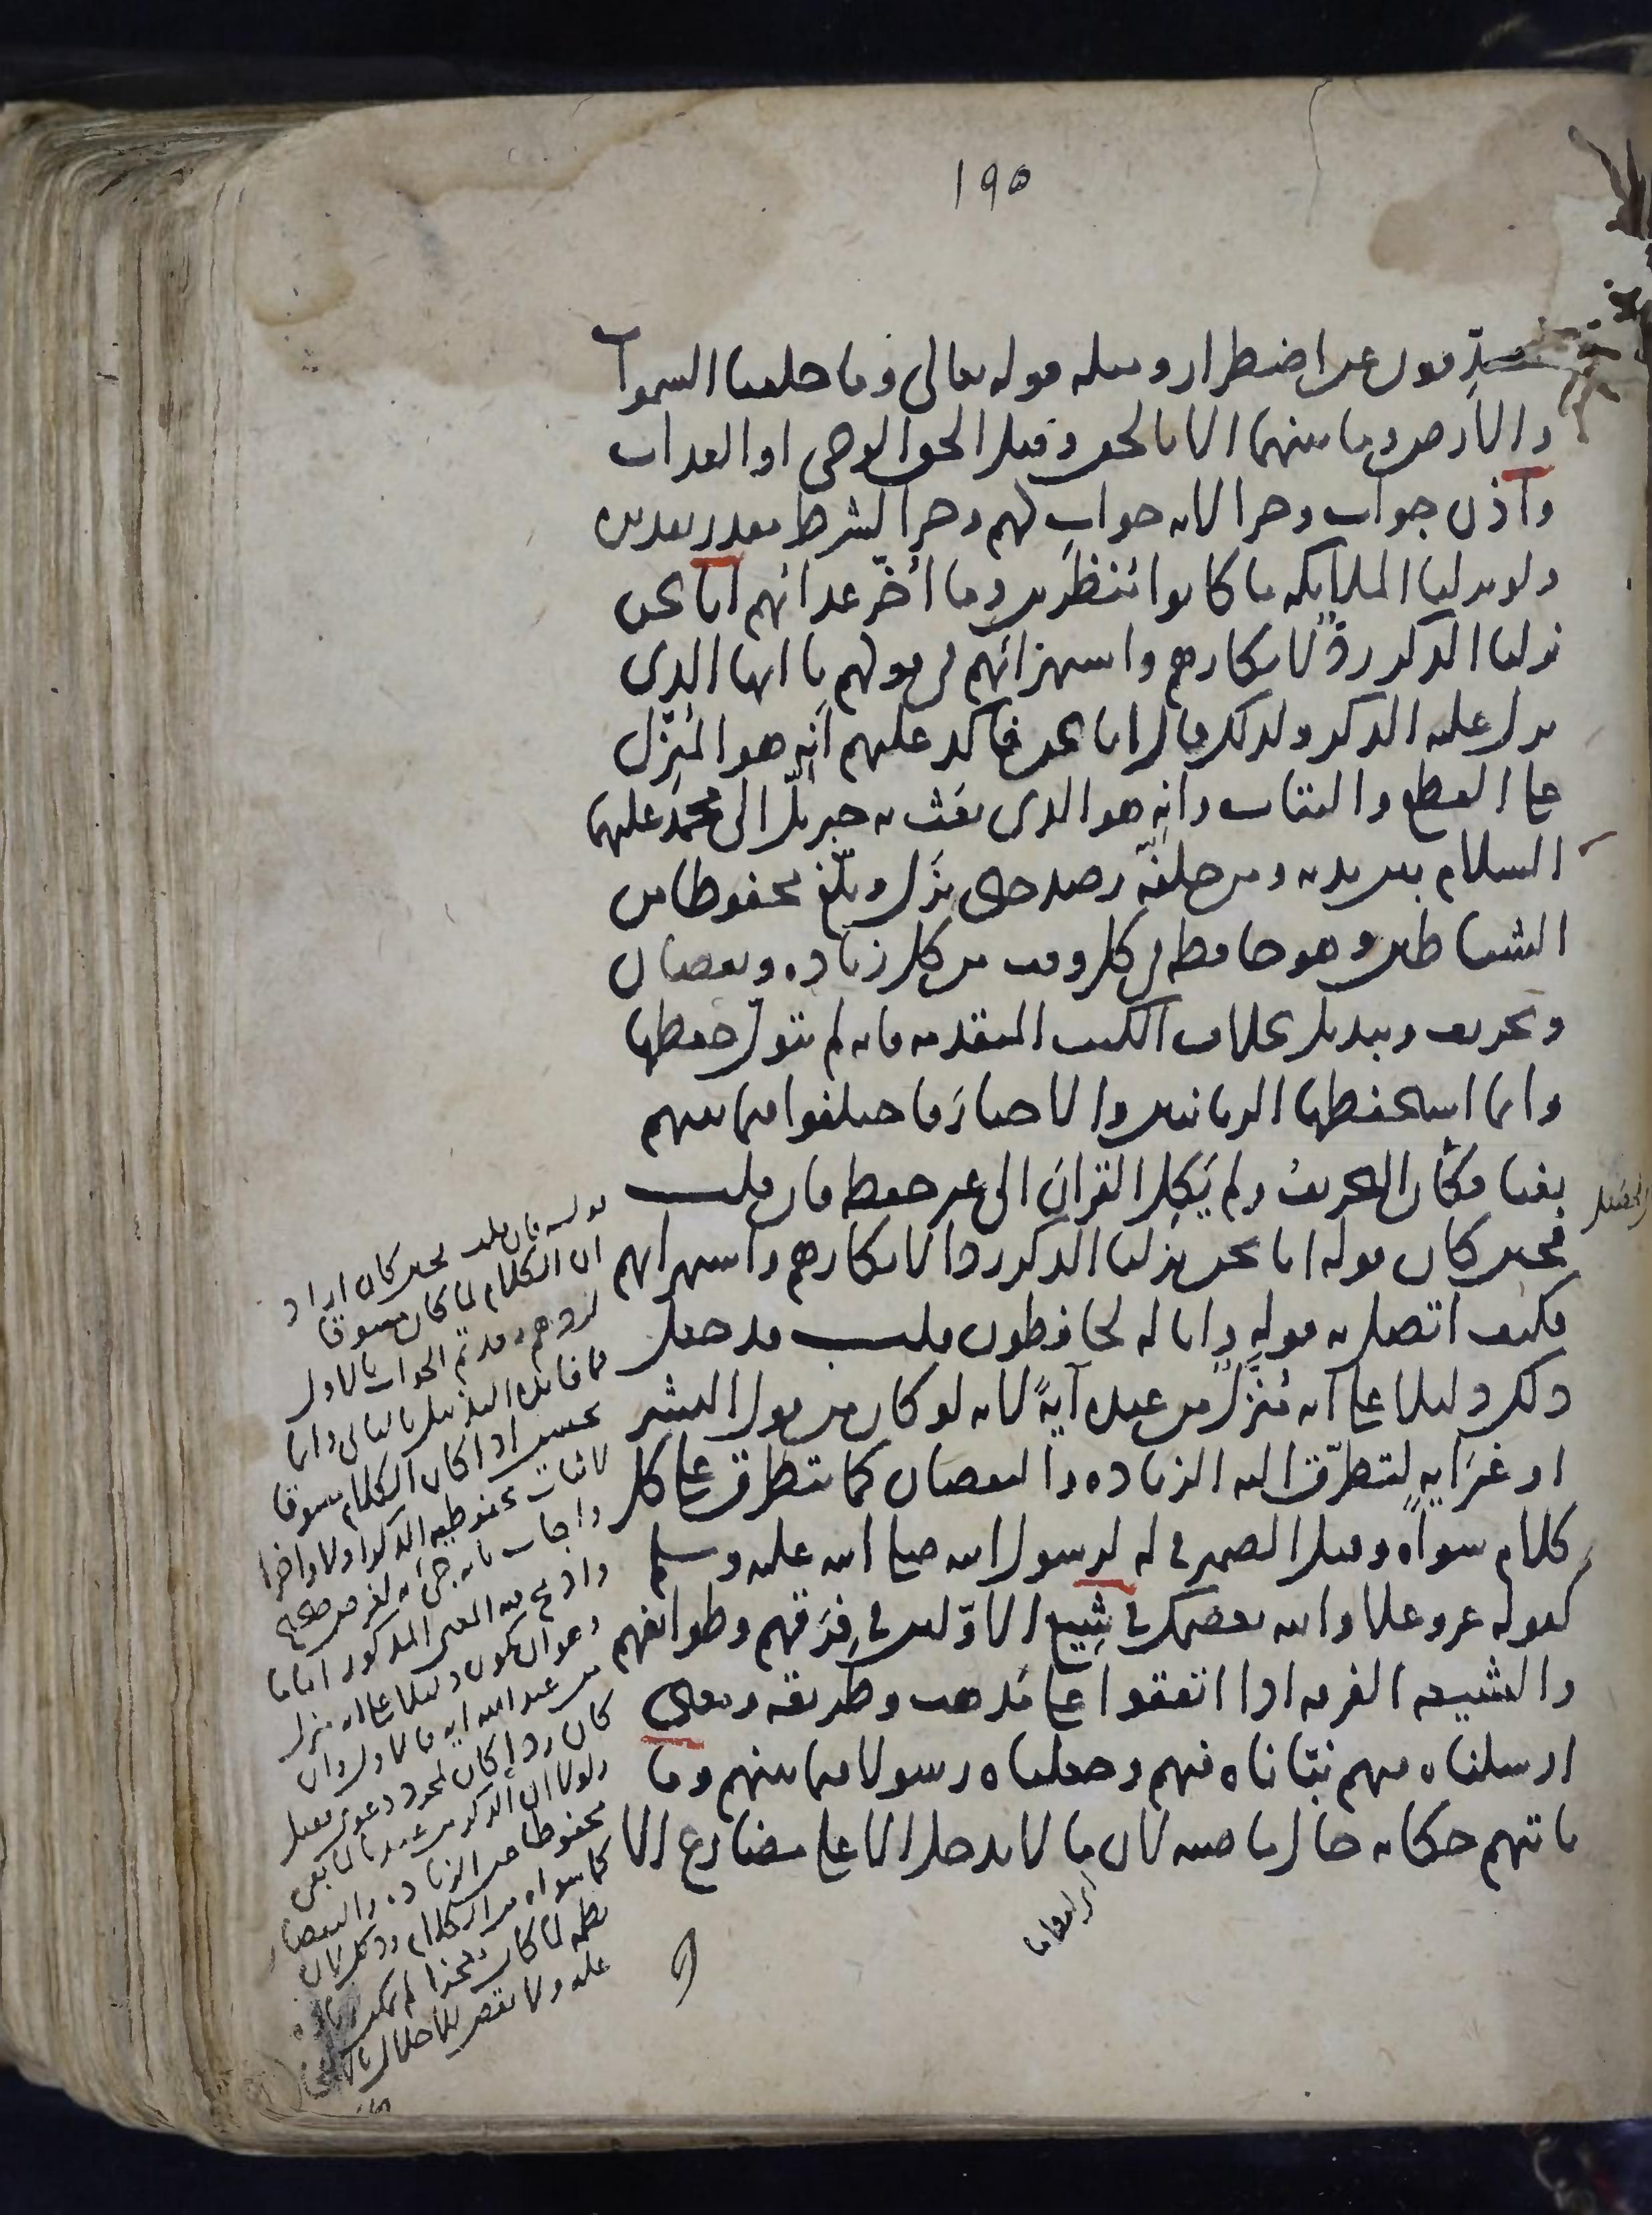 ١٩٥
مصدقون عن اضطرار ومثله قوله تعالى وما خلقنا السموات
والارض وما بينهما الا بالحق وقيل الحق الوحي او العذاب
واذن جواب وجزا لانه جواب لهم وجزا لشرط مقدر تقديره
ولو نزلنا الملايكه ما كانوا منظرين وما اخر عذابهم انا نحن
نزلنا الذكر ردّ لانكارهم واستهزائهم في قولهم يا ايها الذى
نزل عليه الذكر ولذلك قال انا نحن فاكد عليهم انه هو المنزّل
على القطع والبتات وانه هو الذى بعث به جبريل الى محمد عليهما
السلام بين يديه ومن خلفه رصد حتى نزل وبلّغ محفوظا من
الشياطين وهو حافظه في كل وقت من كل زياده ونقصان
وتحريف وتبديل بخلاف الكتب المتقدمه فانه لم يتولّ حفظها
وانما استحفظها الربانيين والاحبار فاختلفوا فيما بينهم
بغيا فكان التحريف ولم يَكِل القران الى غير حفظه فان قلت
فحين كان قوله انا نحن نزلنا الذكر ردا لانكارهم واستهزائهم
فكيف اتصل به قوله وانا له لحافظون قلت قد جعل
ذلك دليلا على انه مُنَزَّل من عنده آيةً لانه لو كان من قول البشر
او غيرَ آيةٍ لتطرّق اليه الزياده والنقصان كما يتطرق على كل
كلام سواه وقيل الضمير في له لرسول الله صلى الله عليه وسلم
كقوله عز وعلا والله يعصمك في شِيَع الاوّلين في فِرَقهم وطوائفهم
والشيعه الفرقه اذا اتفقوا على مذهب وطريقه ومعنى
ارسلناه فيهم نبّأناه فيهم وجعلناه رسولا فيما بينهم وما
ياتيهم حكايه حال ماضيه لان ما لا يدخل الا على مضارع الا
قوله فان قلت فحين كان اراد
ان الكلام لما كان مسوقا
لردهم وقد تم الجواب بالاول
فما فائدة التذييل بالثاني وانما
يحسن اذا كان الكلام مسوقا
لاثبات محفوظيه الذكر اولا واخرا
واجاب بانه جئ به لغرض صحيح
وادمج فيه المعنى المذكور
وهو ان يكون دليلا على انه منزل
من عند الله ايه فالاول وان
كان ردا كان لمجرد دعوى فقيل
ولولا ان الذكر من عندنا لما بقى
محفوظا من الزياده والنقصان
كما سواه من الكلام وذلك لان
نظمه لما كان معجزا لم يمكن زياده
عليه ولا نقص للاخلال